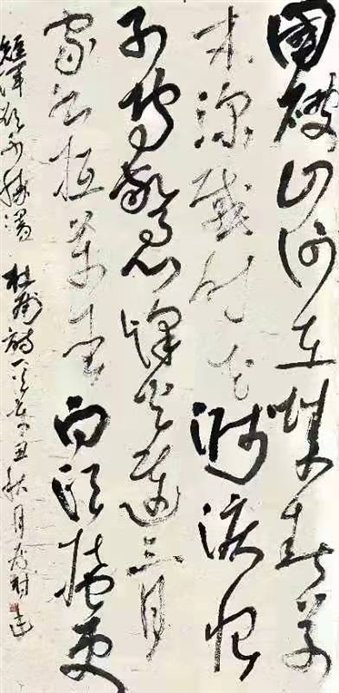 國破山河在城春草
木深感时花濺淚恨
别鳥驚心烽火連三月
家书抵萬金白頭搔更
短渾欲不勝簪 杜甫詩一首辛丑秋月